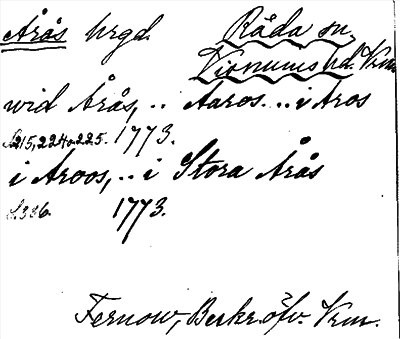 Årås hrgd. Råda sn,
Visnums hd. Vrm.
wid Årås, .. Aaros .. i Aros
S. 215, 224 o. 225. 1773.
i Aroos, .. i Stora Årås
S. 336. 1773.
Fernow, Beskr. öfv. Vrm.